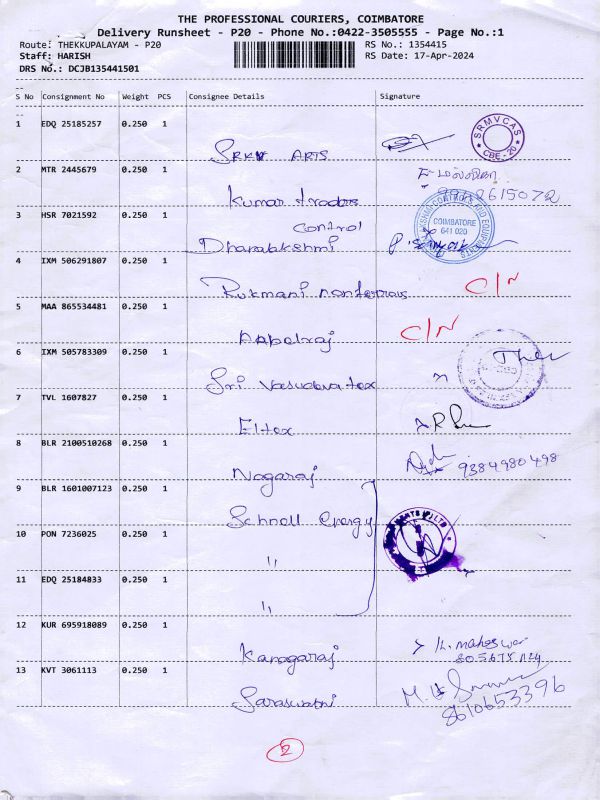 THE PROFESSIONAL COURIERS, COIMBATORE
Delivery Runsheet - P20 - Phone No.:0422-3505555 - Page No.:1
Route: THEKKUPALAYAM - P20
RS No.: 1354415
Staff: HARISH
RS Date: 17-Apr-2024
DRS No.: DCJB135441501
S No Consignment No Weight PCS Consignee Details Signature
1 EDQ 25185257 0.250 1
SRKV ARTS
SRMVCAS CBE-20
2 MTR 2445679 0.250 1
Kumar traders
3 HSR 7021592 0.250 1
Control
Dharalakshmi
COIMBATORE
641 020
4 IXM 506291807 0.250 1
Rukmani nonferrous C/N
5 MAA 865534481 0.250 1
C/N
6 IXM 505783309 0.250 1
Sri Vasudeva tex
7 TVL 1607827 0.250 1
Eltex
8 BLR 2100510268 0.250 1
Nagaraj 9384980498
9 BLR 1601007123 0.250 1
Schnell energy
10 PON 7236025 0.250 1
"
11 EDQ 25184833 0.250 1
"
12 KUR 695918089 0.250 1
Kanagaraj K. maheswar
13 KVT 3061113 0.250 1
Saraswathi 8610653396
2